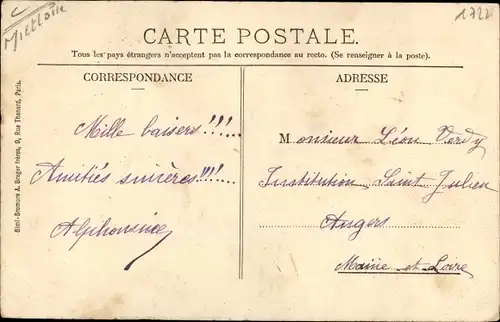 1722
CARTE POSTALE.
Tous les pays étrangers n'acceptent pas la correspondance au recto. (Se renseigner à la poste).
CORRESPONDANCE
ADRESSE
Mille baisers!!!...
Amitiés sincères!!!!...
Alphonsine
Monsieur Léon Verdy
Institution Saint Julien
Angers
Maine et Loire
Simi-Bromure A. Breger frères, 9, Rue Thenard, Paris.